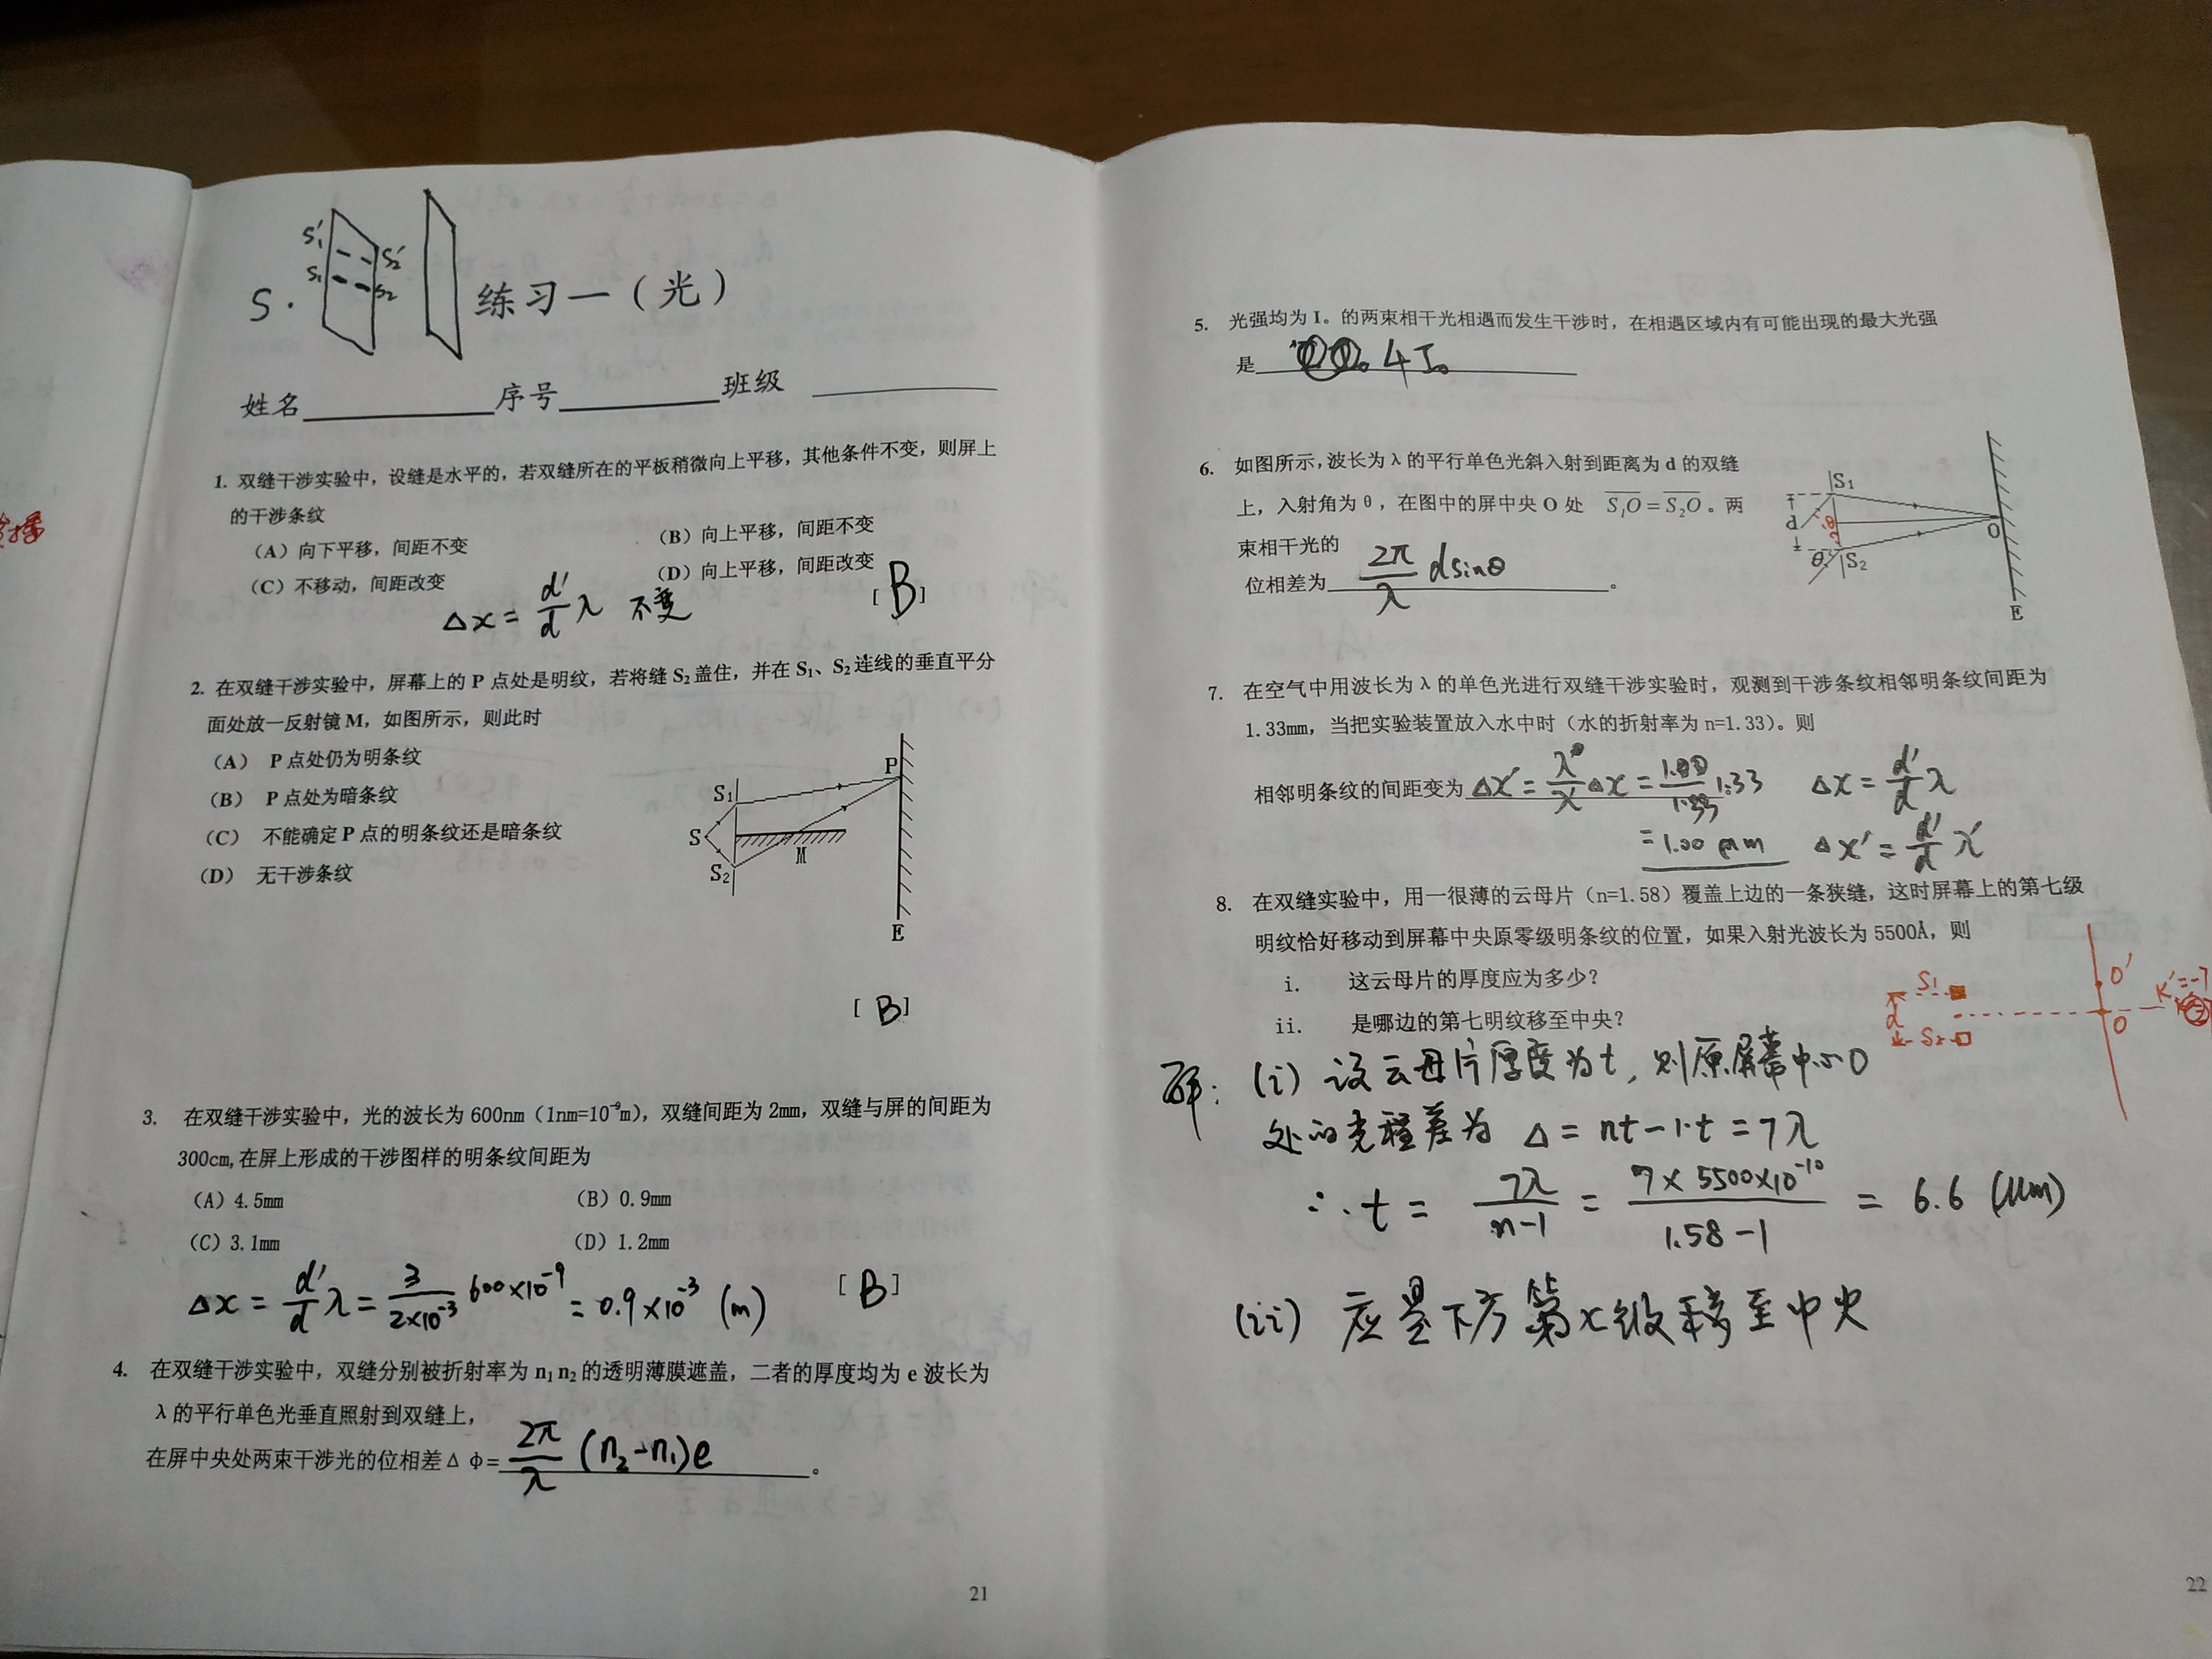 S₁′
S₂′
S₁
S₂
S·
练习一（光）
姓名 序号 班级
1. 双缝干涉实验中，设缝是水平的，若双缝所在的平板稍微向上平移，其他条件不变，则屏上
的干涉条纹
（A）向下平移，间距不变
（B）向上平移，间距不变
（C）不移动，间距改变
（D）向上平移，间距改变
[ B ]
Δx = d′/d λ 不变
2. 在双缝干涉实验中，屏幕上的 P 点处是明纹，若将缝 S₂ 盖住，并在 S₁、S₂ 连线的垂直平分
面处放一反射镜 M，如图所示，则此时
（A） P 点处仍为明条纹
（B） P 点处为暗条纹
（C） 不能确定 P 点的明条纹还是暗条纹
（D） 无干涉条纹
P
S₁
S
M
S₂
E
[ B ]
3. 在双缝干涉实验中，光的波长为 600nm（1nm=10⁻⁹m），双缝间距为 2mm，双缝与屏的间距为
300cm,在屏上形成的干涉图样的明条纹间距为
（A）4.5mm
（B）0.9mm
（C）3.1mm
（D）1.2mm
[ B ]
Δx = d′/d λ = 3/2×10⁻³ 600×10⁻⁹ = 0.9×10⁻³ (m)
4. 在双缝干涉实验中，双缝分别被折射率为 n₁ n₂ 的透明薄膜遮盖，二者的厚度均为 e 波长为
λ 的平行单色光垂直照射到双缝上，
在屏中央处两束干涉光的位相差 Δ φ= 2π/λ (n₂-n₁)e 。
21
5. 光强均为 I。的两束相干光相遇而发生干涉时，在相遇区域内有可能出现的最大光强
是 4I₀
6. 如图所示，波长为 λ 的平行单色光斜入射到距离为 d 的双缝
上，入射角为 θ，在图中的屏中央 O 处 S₁O = S₂O 。两
束相干光的
位相差为 2π/λ dsinθ 。
S₁
d
θ
O
θ
S₂
E
7. 在空气中用波长为 λ 的单色光进行双缝干涉实验时，观测到干涉条纹相邻明条纹间距为
1.33mm，当把实验装置放入水中时（水的折射率为 n=1.33）。则
相邻明条纹的间距变为 Δx′ = λ′/λ Δx = 1.00/1.33 1.33
= 1.00 mm
Δx = d′/d λ
Δx′ = d′/d λ′
8. 在双缝实验中，用一很薄的云母片（n=1.58）覆盖上边的一条狭缝，这时屏幕上的第七级
明纹恰好移动到屏幕中央原零级明条纹的位置，如果入射光波长为 5500Å，则
i. 这云母片的厚度应为多少？
ii. 是哪边的第七明纹移至中央？
S₁
d
S₂
O′
O
K′=-7
解： (i) 设云母片厚度为t，则原屏幕中心O
处的光程差为 Δ = nt-1·t = 7λ
∴ t = 7λ/n-1 = 7×5500×10⁻¹⁰/1.58-1 = 6.6 (μm)
(ii) 应是下方第七级移至中央
22